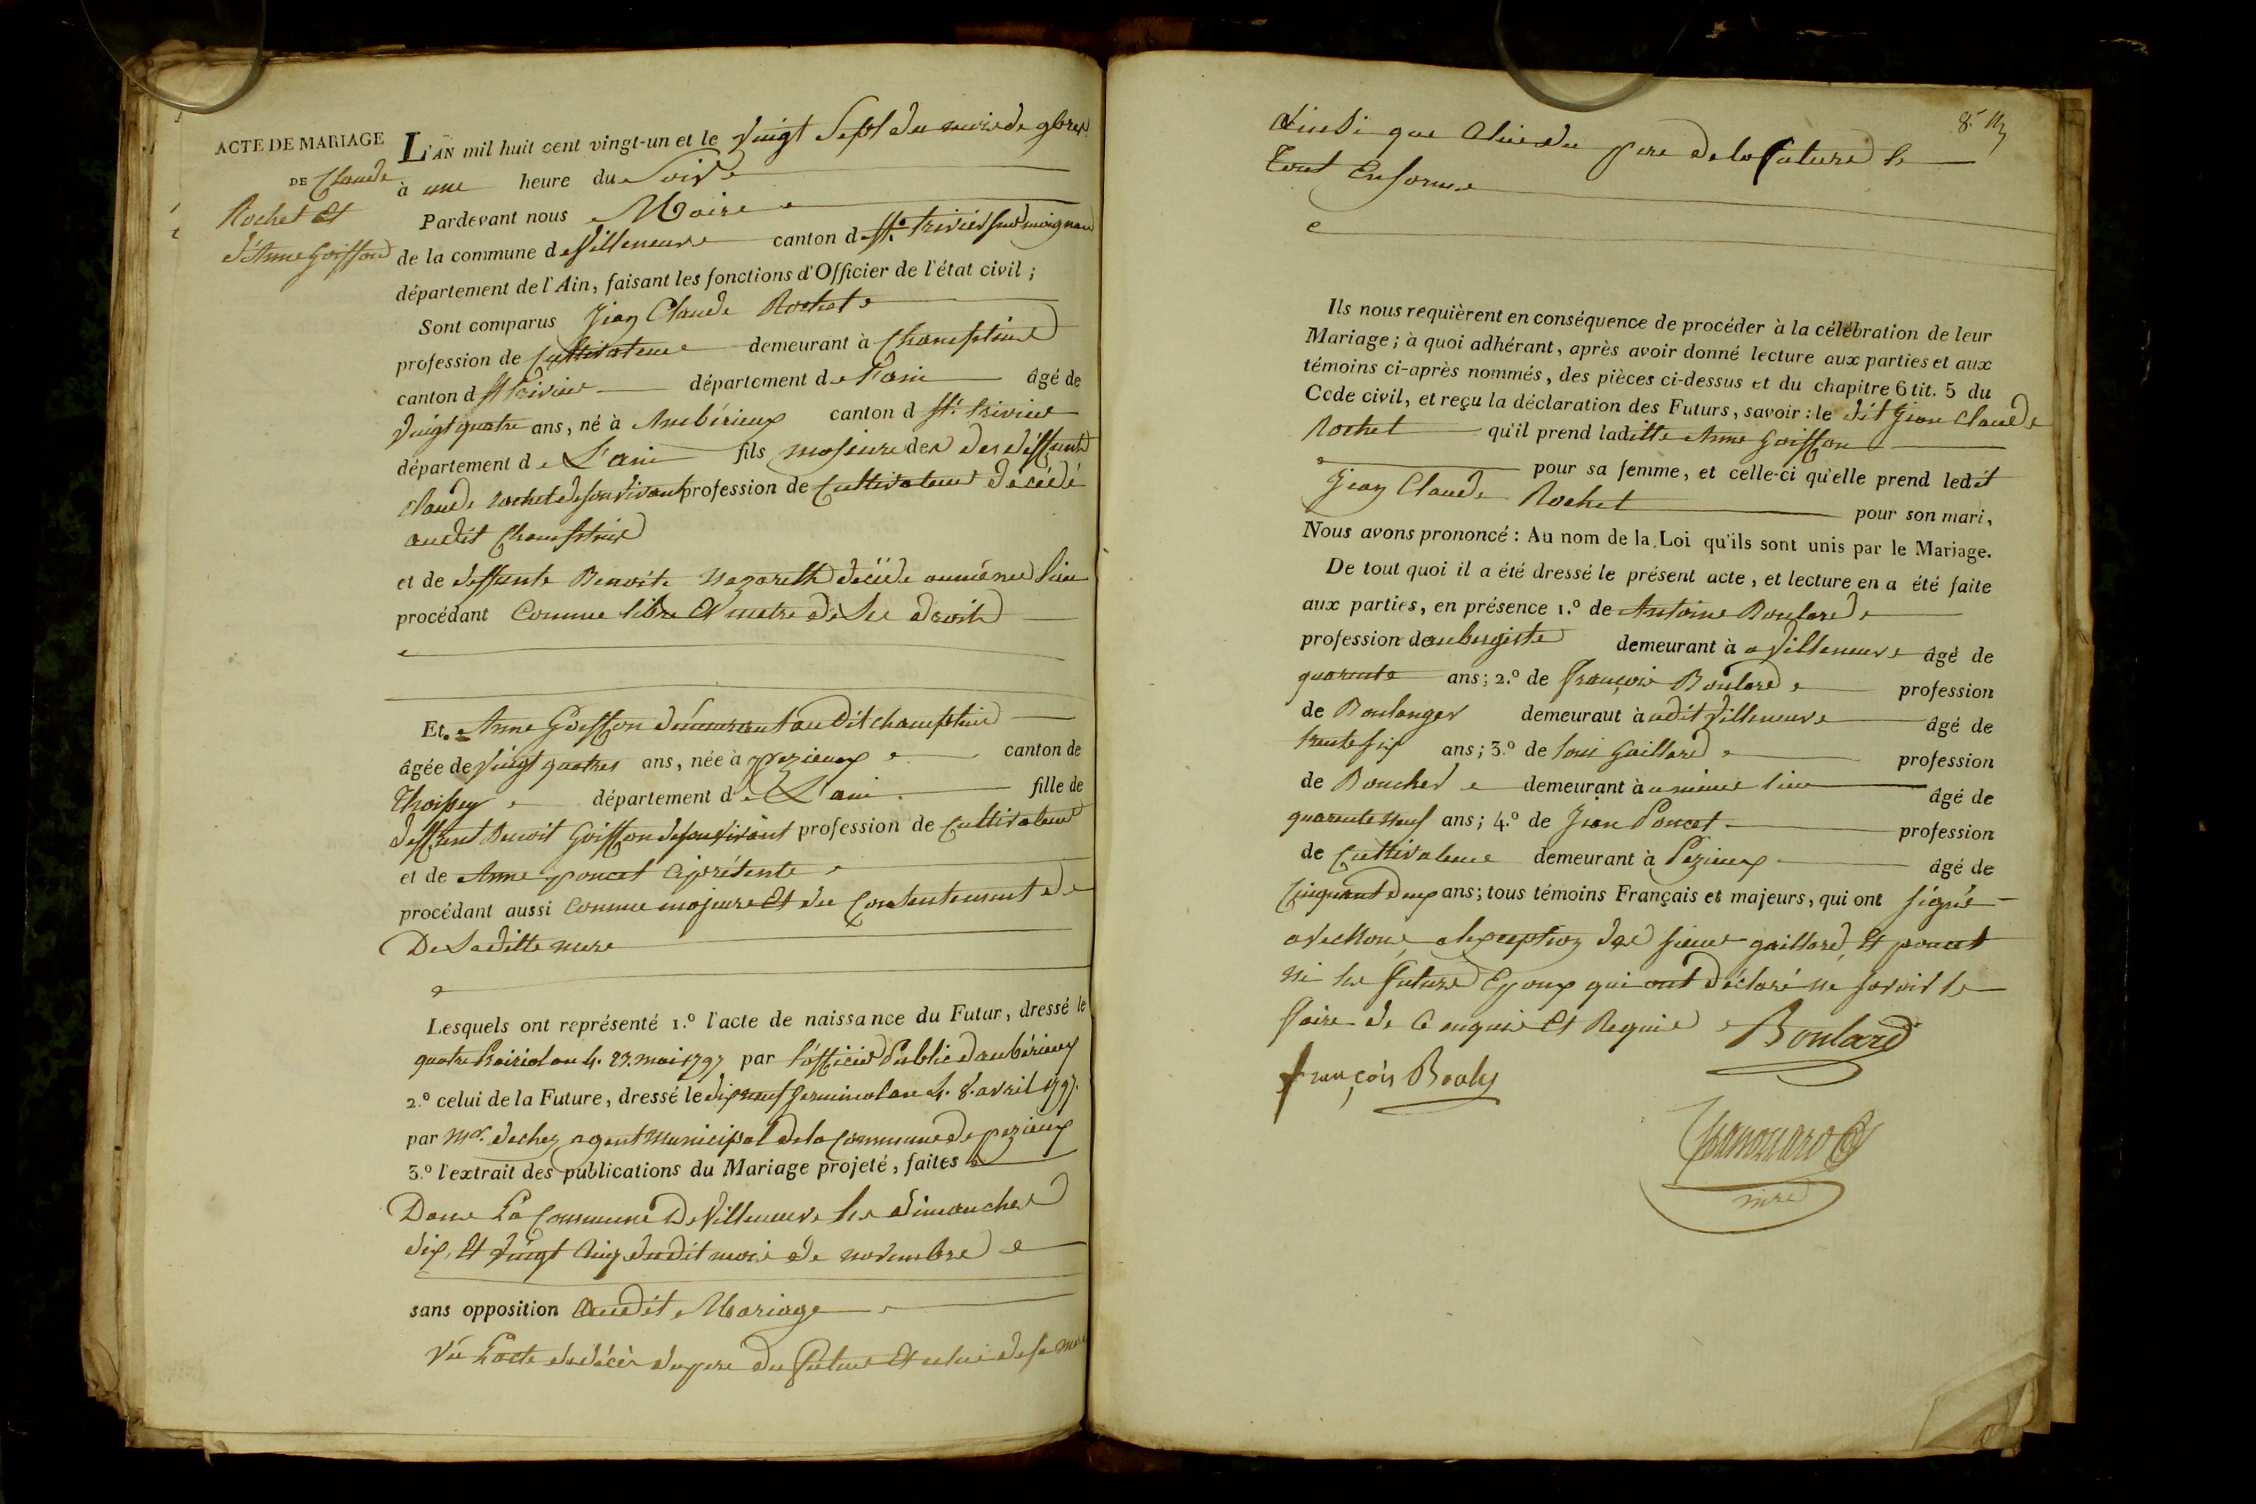 ACTE DE MARIAGE
DE Claude
Rochet Et
d'Anne Goiffon
L'AN mil huit cent vingt-un et le vingt Sept du mois de 9bre
à une heure du Soir
Pardevant nous Maire
de la commune de Villeneuve canton de St. trivier sur moignan
département de l'Ain, faisant les fonctions d'Officier de l'état civil ;
Sont comparus Jean Claude Rochet
profession de Cultivateur demeurant à
canton d St trivier département de L'ain âgé de
vingt quatre ans, né à Ambérieux canton d St. trivier
département de L'ain fils majeur des deffunts
Claude Rochet de son vivant profession de Cultivateur décédé
audit
et de deffunte Benoite Nazareth décédé au même lieu
procédant Comme libre Et maitre de Se droits
Et Anne Goiffon demeurant audit
âgée de vingt quatres ans, née à pezieux canton de
Thoissey département de L'ain fille de
deffunt Benoit Goiffon de son vivant profession de Cultivateur
et de Anne poncet Ciprésente
procédant aussi Comme majeure Et du Consentement de
De Saditte mere
Lesquels ont représenté 1.º l'acte de naissance du Futur, dressé le
quatre Prairial an 4. 23. mai 1797 par l'officier Public d'ambérieux
2.º celui de la Future, dressé le dix neuf germinal an 4. 8. avril 1797.
par Mr. dechez agent Municipal de la Commune de pezieux
3.º l'extrait des publications du Mariage projeté, faites
Dans La Commune De Villeneuve les dimanches
dix, Et vingt Cinq dudit mois de novembre
sans opposition audit Mariage
Vu L'acte de décès du pere du futur Et celui de sa mere
8.
Ainsi que Celui du pere de la future le
Tout En forme
Ils nous requièrent en conséquence de procéder à la célébration de leur
Mariage ; à quoi adhérant, après avoir donné lecture aux parties et aux
témoins ci-après nommés, des pièces ci-dessus et du chapitre 6 tit. 5 du
Code civil, et reçu la déclaration des Futurs, savoir : le dit Jean Claude
Rochet qu'il prend laditte Anne Goiffon
pour sa femme, et celle-ci qu'elle prend ledit
Jean Claude Rochet pour son mari,
Nous avons prononcé : Au nom de la Loi qu'ils sont unis par le Mariage.
De tout quoi il a été dressé le présent acte, et lecture en a été faite
aux parties, en présence 1.º de Antoine Boulard
profession de aubergiste demeurant à Villeneuve âgé de
quarante ans ; 2.º de François Boulard profession
de Boulanger demeurant à udit Villeneuve âgé de
trente six ans ; 3.º de Gaillard profession
de Boucher demeurant à u même lieu âgé de
quarente neuf ans ; 4.º de Jean Poncet profession
de Cultivateur demeurant à Pezieux âgé de
Cinquant deux ans ; tous témoins Français et majeurs, qui ont signé
avec nous, a l'exeption des sieurs gaillard, Et poncet
ni les futurs Epoux qui ont déclaré ne savoir le
faire de Ce enquis Et Requis
Boulard
françois